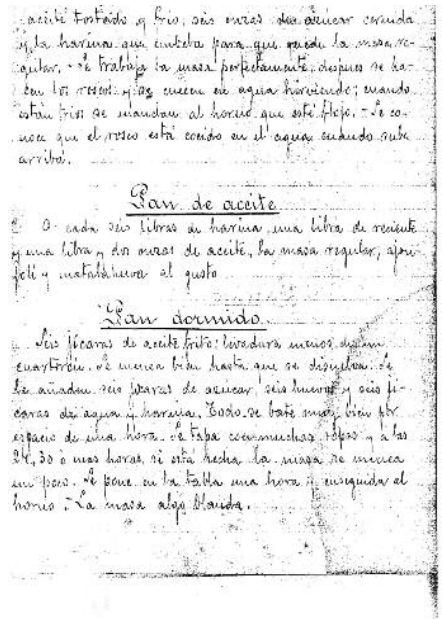 aceite tostado y frio, seis onzas de azucar cernida
y la harina que embeba para que quede la masa re-
gular. - Se trabaja la masa perfectamente, despues se ha-
cen los roscos y se cuecen en agua hirviendo; cuando
están frios se mandan al horno que esté flojo. - Se co-
noce que el rosco está cocido en el agua cuando sube
arriba.
Pan de aceite
A cada seis libras de harina, una libra de reciente
y una libra y dos onzas de aceite, la masa regular, ajon-
jolí y matalahuva al gusto.
Pan dormido.
Seis jícaras de aceite frito: levadura menos de un
cuarterón. Se menea bien hasta que se disuelva. Se
le añaden seis jícaras de azucar, seis huevos y seis jí-
caras de agua y harina. Todo se bate muy bien por
espacio de una hora. Se tapa con muchas ropas y a las
24, 30 ó mas horas, si está hecha la masa se menea
un poco. Se pone en la tabla una hora y enseguida al
horno. - La masa algo blanda.